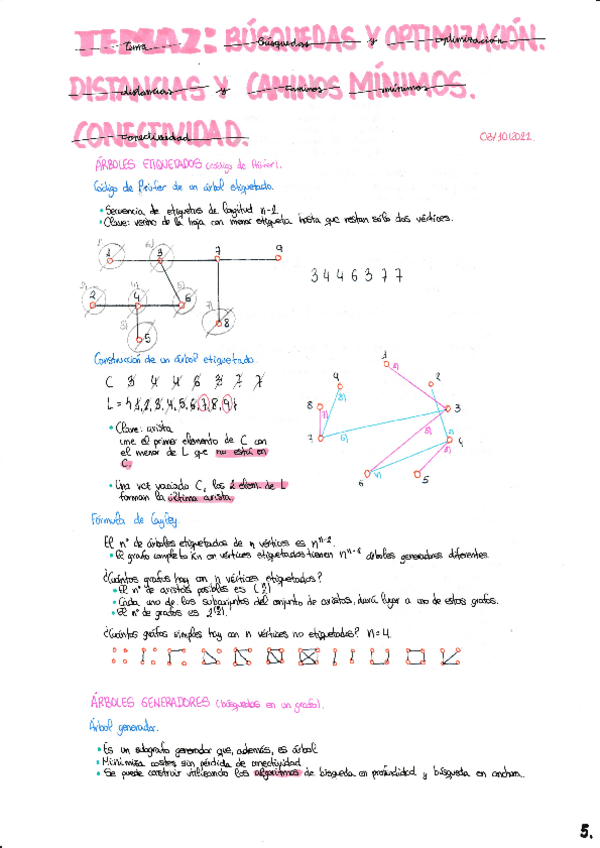 TEMA 2: BÚSQUEDAS Y OPTIMIZACIÓN.
Tema Búsquedas y optimización
DISTANCIAS Y CAMINOS MÍNIMOS.
distancias y caminos mínimos
CONECTIVIDAD.
conectividad
03/10/2021
ÁRBOLES ETIQUETADOS (código de Prüfer).
Código de Prüfer de un árbol etiquetado.
• Secuencia de etiquetas de longitud n-2
• Clave: vecino de la hoja con menor etiqueta hasta que restan sólo dos vértices.
1 3 7 9
3 4 4 6 3 7 7
2 4 6
8
5
Construcción de un árbol etiquetado.
C 3 4 4 6 3 7 7
L = {1,2,3,4,5,6,7,8,9}
• Clave: arista
une el primer elemento de C con
el menor de L que no está en
C.
• Una vez vaciado C, los 2 elem. de L
forman la última arista
1
9 2
8 3
7 4
6 5
Fórmula de Cayley.
El nº de árboles etiquetados de n vértices es nⁿ⁻².
• El grafo completo Kn con vértices etiquetados tienen nⁿ⁻² árboles generadores diferentes.
¿Cuántos grafos hay con n vértices etiquetados?
• El nº de aristas posibles es (n 2)
• Cada uno de los subconjuntos del conjunto de aristas, dará lugar a uno de estos grafos.
• El nº de grafos es 2^(n 2).
¿Cuántos grafos simples hay con n vértices no etiquetados? n=4.
ÁRBOLES GENERADORES (búsquedas en un grafo).
Árbol generador.
• Es un subgrafo generador que, además, es árbol
• Minimiza costes sin pérdida de conectividad
• Se puede construir utilizando los algoritmos de búsqueda en profundidad y búsqueda en anchura.
5.